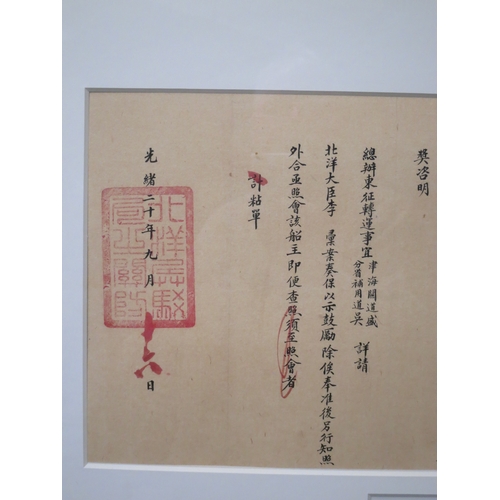 獎咨明
總辦東征轉運事宜津海關道盛分省補用道吳 詳請
北洋大臣李 彙案奏保以示鼓勵除俟奉准後另行知照
外合亟照會該船主即便查照須至照會者
計粘單
光緒二十年九月十六日